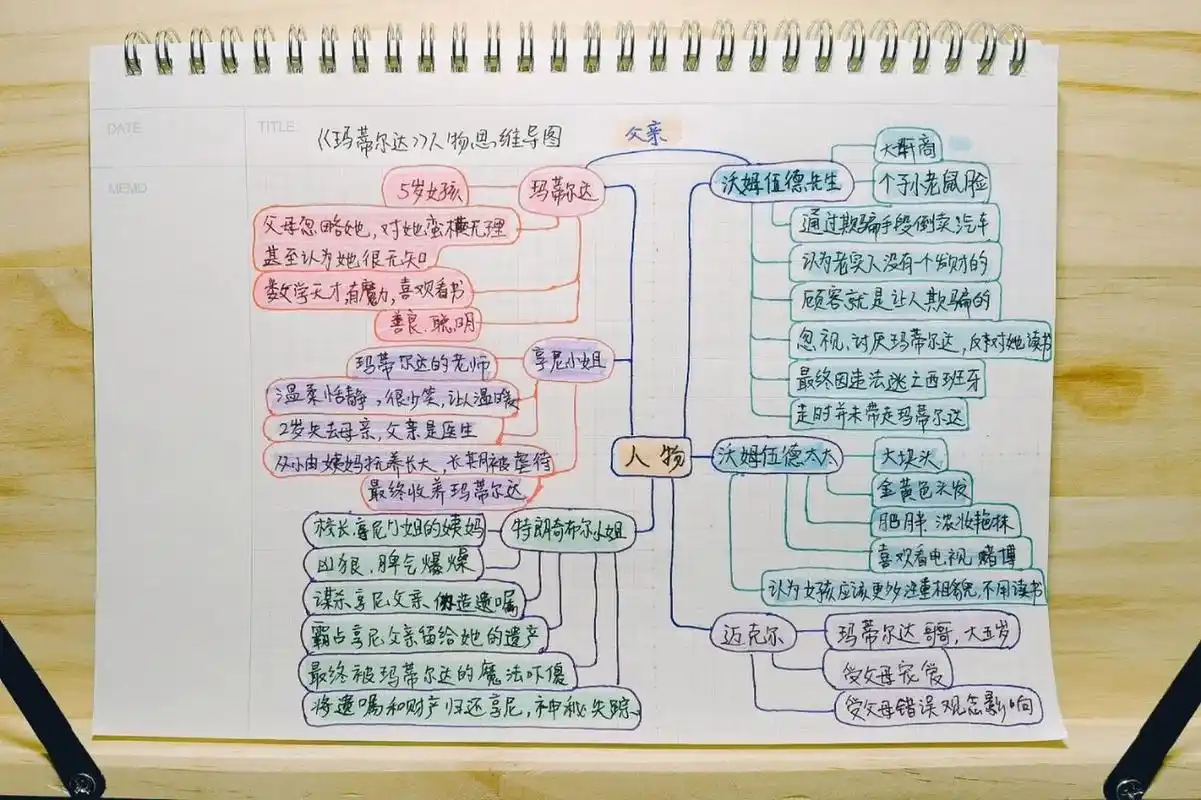 DATE
TITLE
MEMO
《玛蒂尔达》人物思维导图
父亲
玛蒂尔达
5岁女孩
父母忽略她,对她蛮横无理
甚至认为她很无知
数学天才,有魔力,喜欢看书
善良.聪明
亨尼小姐
玛蒂尔达的老师
温柔恬静,很少笑,让人温暖
2岁失去母亲,父亲是医生
从小由姨妈抚养长大,长期被虐待
最终收养玛蒂尔达
人物
特朗奇布尔小姐
校长亨尼小姐的姨妈
凶狠.脾气爆燥
谋杀亨尼父亲、伪造遗嘱
霸占亨尼父亲留给她的遗产
最终被玛蒂尔达的魔法吓傻
将遗嘱和财产归还亨尼,神秘失踪
沃姆伍德先生
大奸商
个子小老鼠脸
通过欺骗手段倒卖汽车
认为老实人没有一个发财的
顾客就是让人欺骗的
忽视、讨厌玛蒂尔达,反对她读书
最终因走法逃亡西班牙
走时并未带走玛蒂尔达
沃姆伍德太太
大块头
金黄色头发
肥胖.浓妆艳抹
喜欢看电视.赌博
认为女孩应该更多注重相貌,不用读书
迈克尔
玛蒂尔达哥哥,大五岁
受父母宠爱
受父母错误观念影响